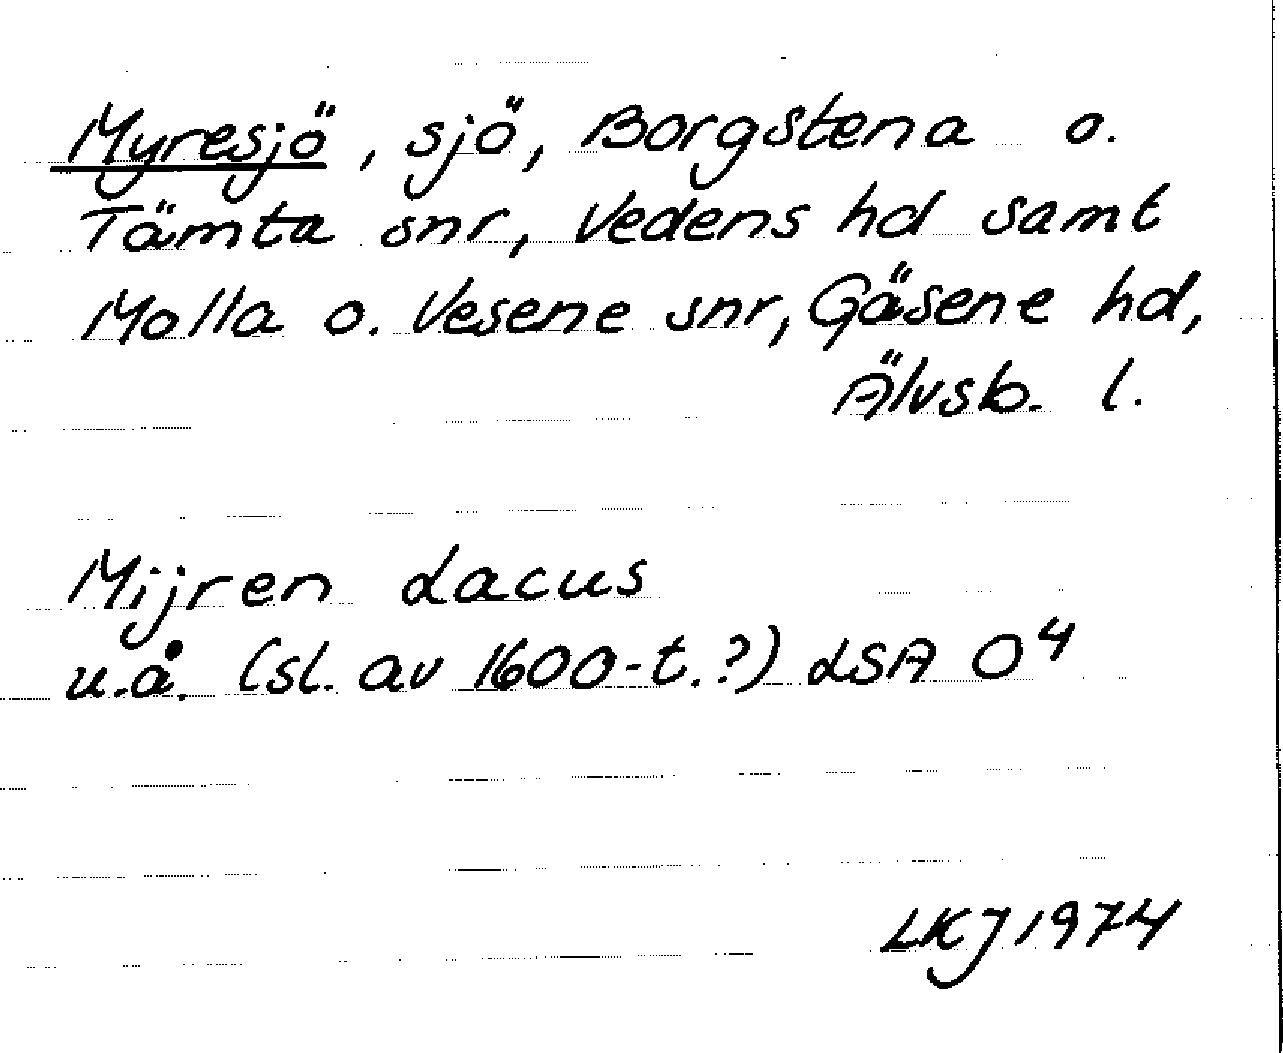 Myresjö, sjö, Borgstena o.
Tämta snr, Vedens hd samt
Molla o. Vesene snr, Gäsene hd,
Älvsb. l.
Mijren Lacus
u.å. (sl. av 1600-t.?) LSA O4
LKJ 1974